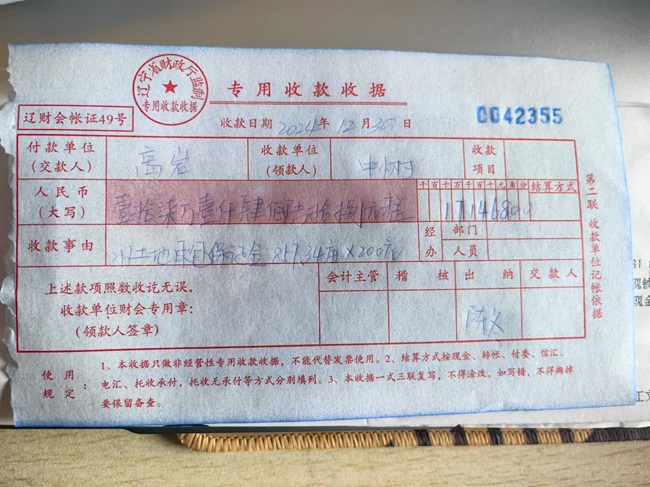 辽宁省财政厅监制
专用收款收据
专用收款收据
辽财会帐证49号
收款日期 2024年12月30日
0042355
付款单位(交款人) 高岩 收款单位(领款人) 收款项目
人民币(大写) 壹拾柒万壹仟肆佰 元整 千百十万千百十元角分 17146800 结算方式
收款事由 土地 857.34亩×200元 经办 部门 人员
上述款项照数收讫无误。
收款单位财会专用章:
(领款人签章)
会计主管 稽核 出纳 交款人
陈义
第二联 收款单位记帐依据
使用规定:
1、本收据只做非经营性专用收款收据,不能代替发票使用。2、结算方式按现金、转帐、付委、信汇、
电汇、托收承付,托收无承付等方式分别填列。3、本收据一式三联复写,不得涂改,如写错,不得撕掉
要保留备查。